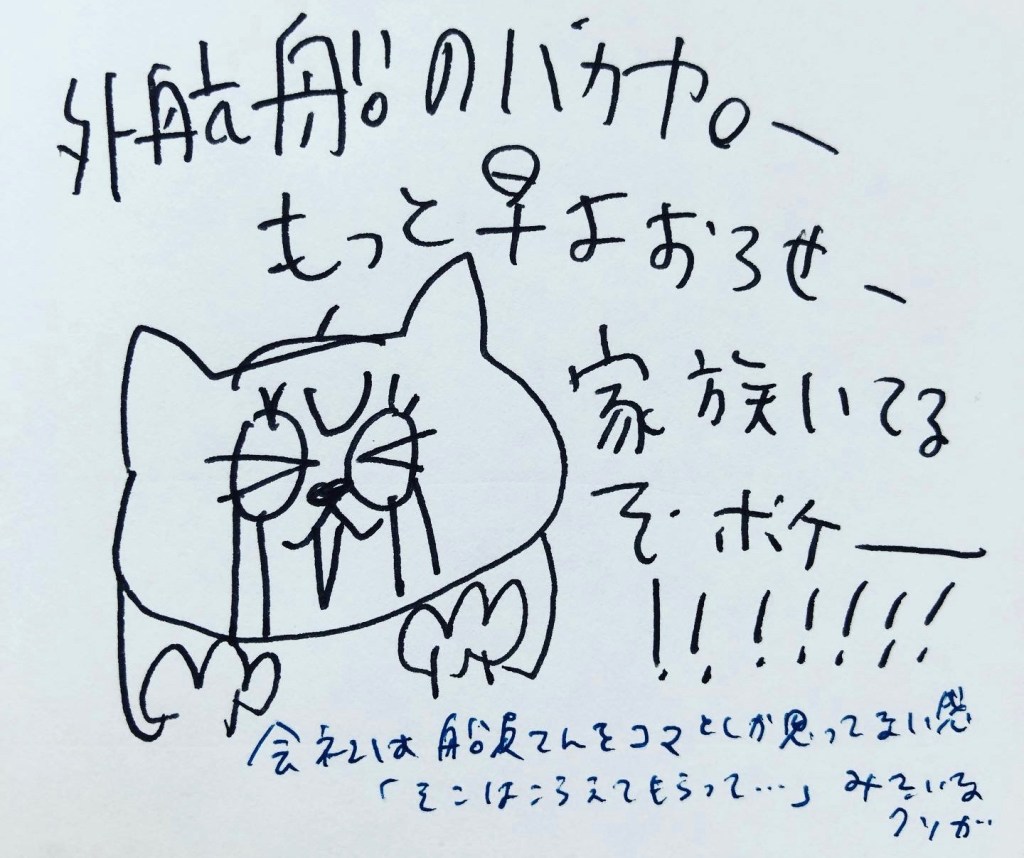 外航船のバカヤ。ー
もっと早よおろせ、
家族いてる
ぞ ボケー
!!!!!!!
会社は船員さんをコマとしか思ってない感
「そこはこらえてもらって…」みたいな
クソが